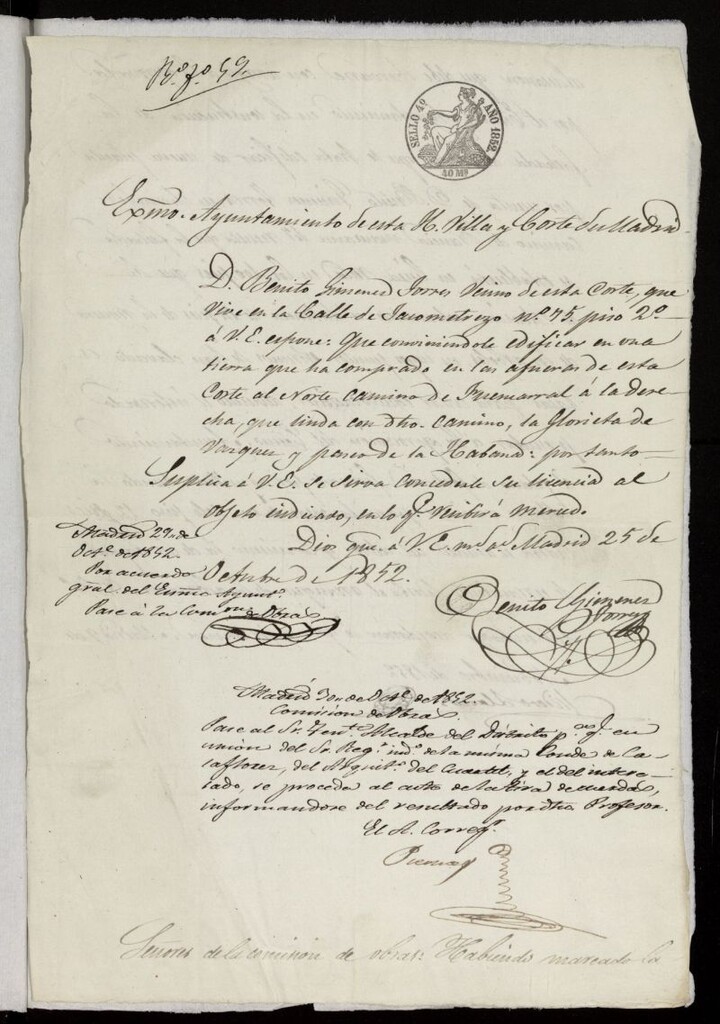 Rº. fº. 59.
SELLO 4º AÑO 1852
40 Ms
Exmo. Ayuntamiento de esta H. Villa y Corte de Madrid
D. Benito Gimenez Torres Vecino de esta Corte, que
Vive en la Calle de Jacometrezo nº. 75. piso 2º
á V. E. espone: Que conviniendole edificar en una
tierra que ha comprado en las afueras de esta
Corte al Norte camino de Fuencarral á la dere-
cha, que linda con dho. camino, la Glorieta de
Vazquez y paseo de la Habana: por tanto
Suplica á V. E. se sirva concederle su licencia al
objeto indicado, en lo q. recibirá merced.
Dios gue. á V. E. ms. as. Madrid 25 de
Octubre de 1852.
Benito Gimenez
Torres
Madrid 29. de
Octe. de 1852.
Por acuerdo
gral. del Exmo. Ayunto.
Pase á la Comon. de Obras
Madrid 30. de Octe. de 1852.
Comision de Obras.
Pase al Sr. Tente. Alcalde del Distrito p. q. en
union del Sr. Regr. indo. de la misma Conde de Ca-
saflores, del Arquito. del Cuartel, y el del intere-
sado, se proceda al acto de la tira de cuerdas,
informandose del resultado por dho Profesor.
El A. Corregr.
Señores de la comision de obras: Habiendo marcado la